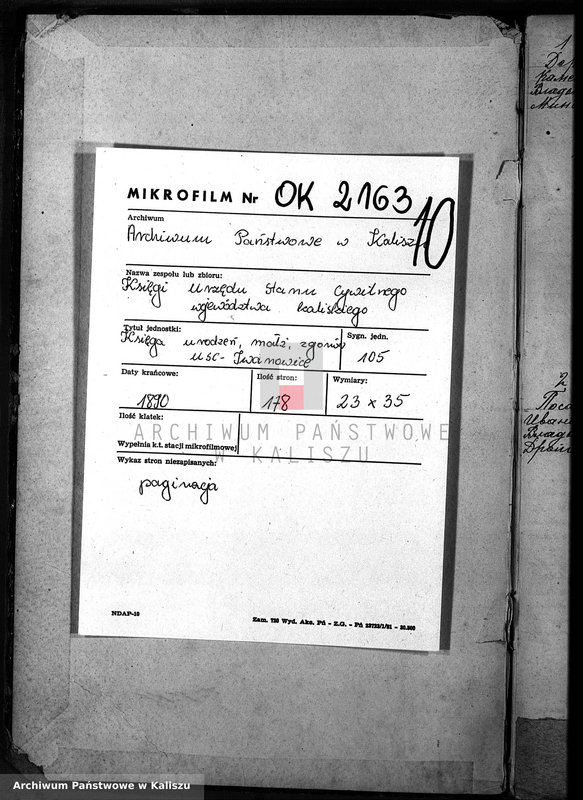 MIKROFILM Nr OK 2163
10
Archiwum
Archiwum Państwowe w Kaliszu
Nazwa zespołu lub zbioru:
Księgi Urzędu Stanu Cywilnego
województwa kaliskiego
Tytuł jednostki:
Księga urodzeń, małż, zgonów
USC - Iwanowice
Sygn. jedn.
105
Daty krańcowe:
1890
Ilość stron:
178
Wymiary:
23 x 35
Ilość klatek:
Wypełnia k.t. stacji mikrofilmowej
Wykaz stron niezapisanych:
paginacja
ARCHIWUM PAŃSTWOWE
W KALISZU
NDAP-10
Zam. 720 Wyd. Akc. Pń - Z.G. - Pń
1
2
Archiwum Państwowe w Kaliszu